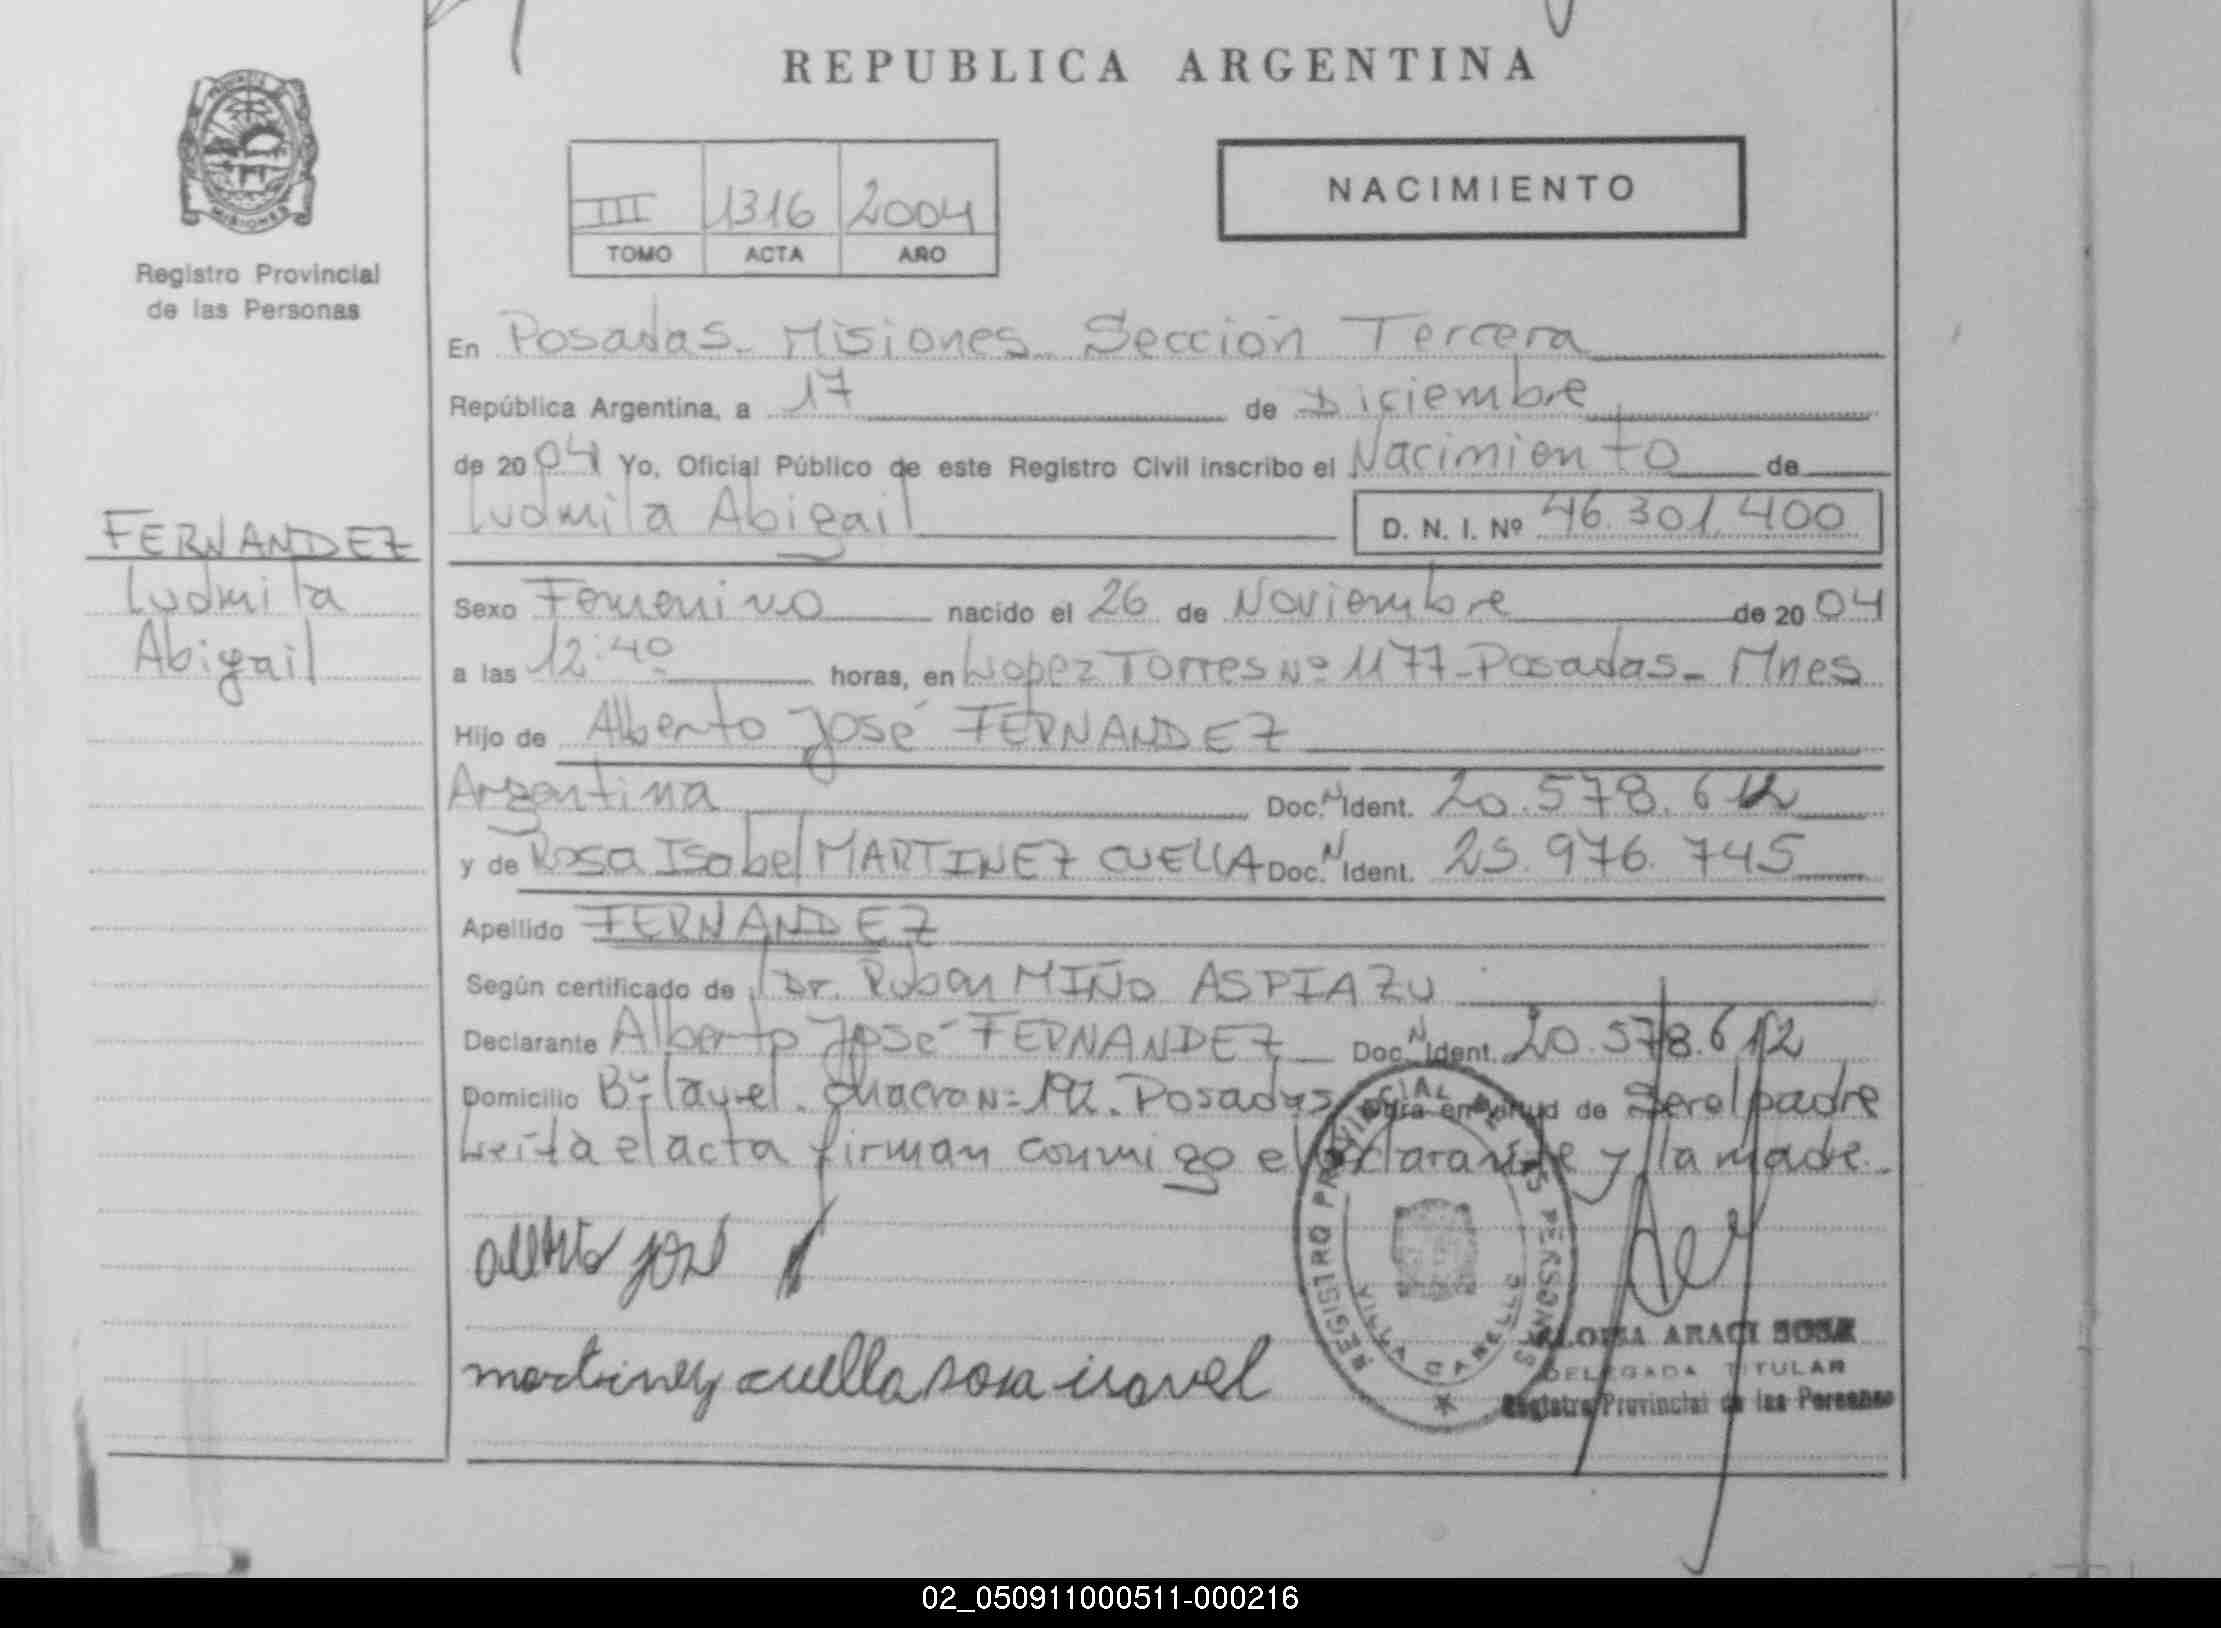 REPUBLICA ARGENTINA
PROVINCIA DE
MISIONES
Registro Provincial
de las Personas
NACIMIENTO
III 1316 2004
TOMO ACTA AÑO
En Posadas - Misiones - Sección Tercera
República Argentina, a 17 de Diciembre
de 2004 Yo, Oficial Público de este Registro Civil inscribo el Nacimiento de
Ludmila Abigail D. N. I. Nº 46.301.400
FERNANDEZ
Ludmila
Abigail
Sexo Femenino nacido el 26 de Noviembre de 2004
a las 12:40 horas, en Lopez Torres Nº 1177 - Posadas - Mnes
Hijo de Alberto José FERNANDEZ
Argentina Doc. N Ident. 20.578.612
y de Rosa Isabel MARTINEZ CUELLA Doc. N Ident. 25.976.745
Apellido FERNANDEZ
Según certificado de Dr. Ruben MIÑO ASPIAZU
Declarante Alberto José FERNANDEZ Doc. N Ident. 20.578.612
Domicilio Chacra Nº 192. Posadas Obra en virtud de Ser el padre
Leída el acta firman conmigo el declarante y la madre.
alberto jose
martinez cuella rosa isavel
REGISTRO PROVINCIAL DE LAS PERSONAS
VILLA CABELLO
ARACI SOSA
DELEGADA TITULAR
Registro Provincial de las Personas
02_050911000511-000216